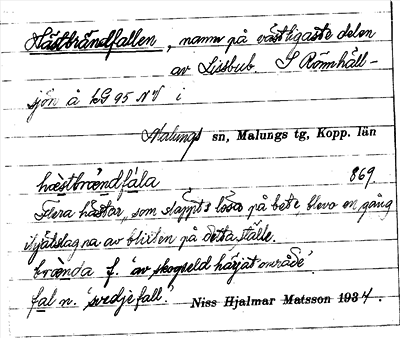 Hästbrändfallen, namn på västligaste delen
av Lissbub. S Römhåll-
sjön å kG 95 NV i
Malungs sn, Malungs tg, Kopp. län
hæstbræ̀ndfàla 869
Flera hästar, som släppts lösa på bete, blevo en gång
ihjälslagna av blixten på detta ställe.
brænda f. 'av skogseld härjat område'.
fal n. 'svedjefall'. Niss Hjalmar Matsson 1934.